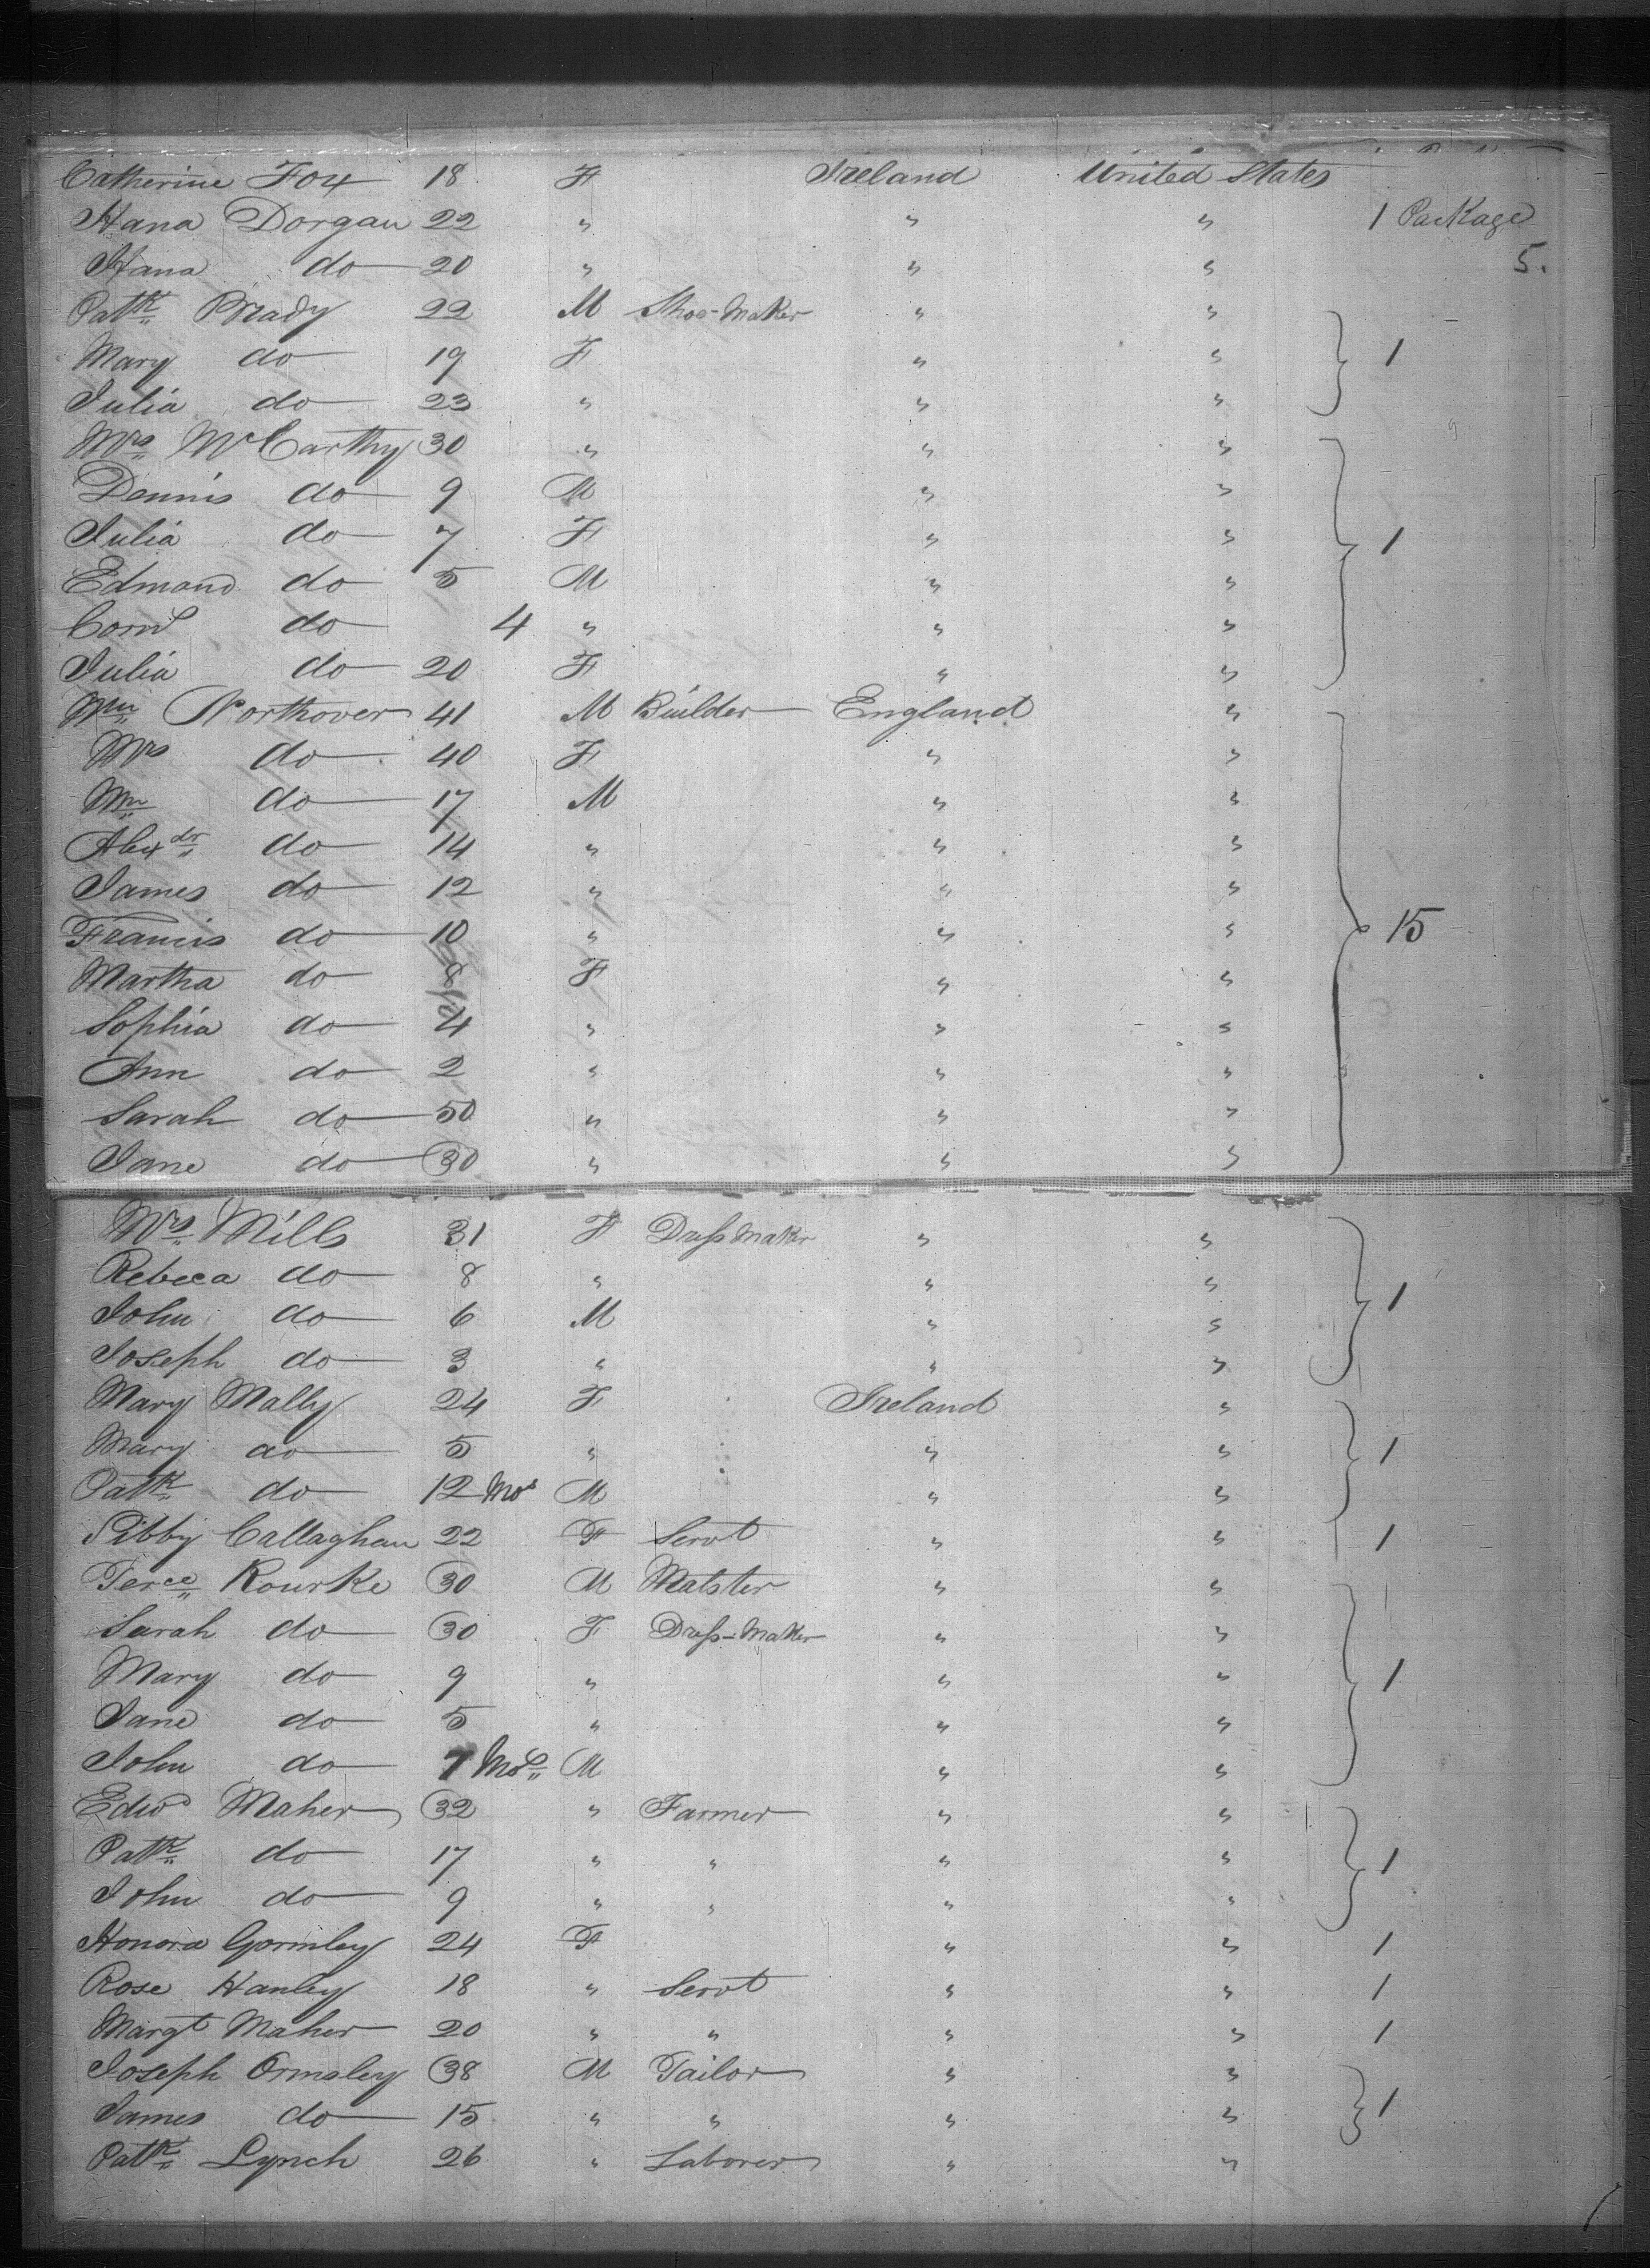 Catherine Fox 18 F Ireland United States
Hana Dorgan 22 " " " 1 Package
Hana do 20 " " " 5.
Patk Brady 22 M Shoe-Maker " "
Mary do 19 F " " 1
Julia do 23 " " "
Mrs McCarthy 30 " " "
Dennis do 9 M " "
Julia do 7 F " " 1
Edmand do 5 M " "
Cornl do 4 " " "
Julia do 20 F " "
Wm Northover 41 M Builder England "
Mrs do 40 F " "
Wm do 17 M " "
Alexdr do 14 " " "
James do 12 " " "
Francis do 10 " " " 15
Martha do 8 F " "
Sophia do 4 " " "
Ann do 2 " " "
Sarah do 50 " " "
Jane do 30 " " "
Mrs Mills 31 F Dress Maker " "
Rebeca do 8 " " "
John do 6 M " " 1
Joseph do 3 " " "
Mary Mally 24 F Ireland "
Mary do 5 " " " 1
Patk do 12 Mos M " "
Bibby Callaghan 22 F Servt " " 1
Terce Rourke 30 M Malster " "
Sarah do 30 F Dress-Maker " "
Mary do 9 " " " 1
Jane do 5 " " "
John do 7 Mos M " "
Edwd Maher 32 " Farmer " "
Patk do 17 " " " " 1
John do 9 " " " "
Honora Gormley 24 F " " 1
Rose Hanley 18 " Servt " " 1
Margt Maher 20 " " " " 1
Joseph Ormsley 38 M Tailor " "
James do 15 " " " " 1
Patk Lynch 26 " Laborer " "